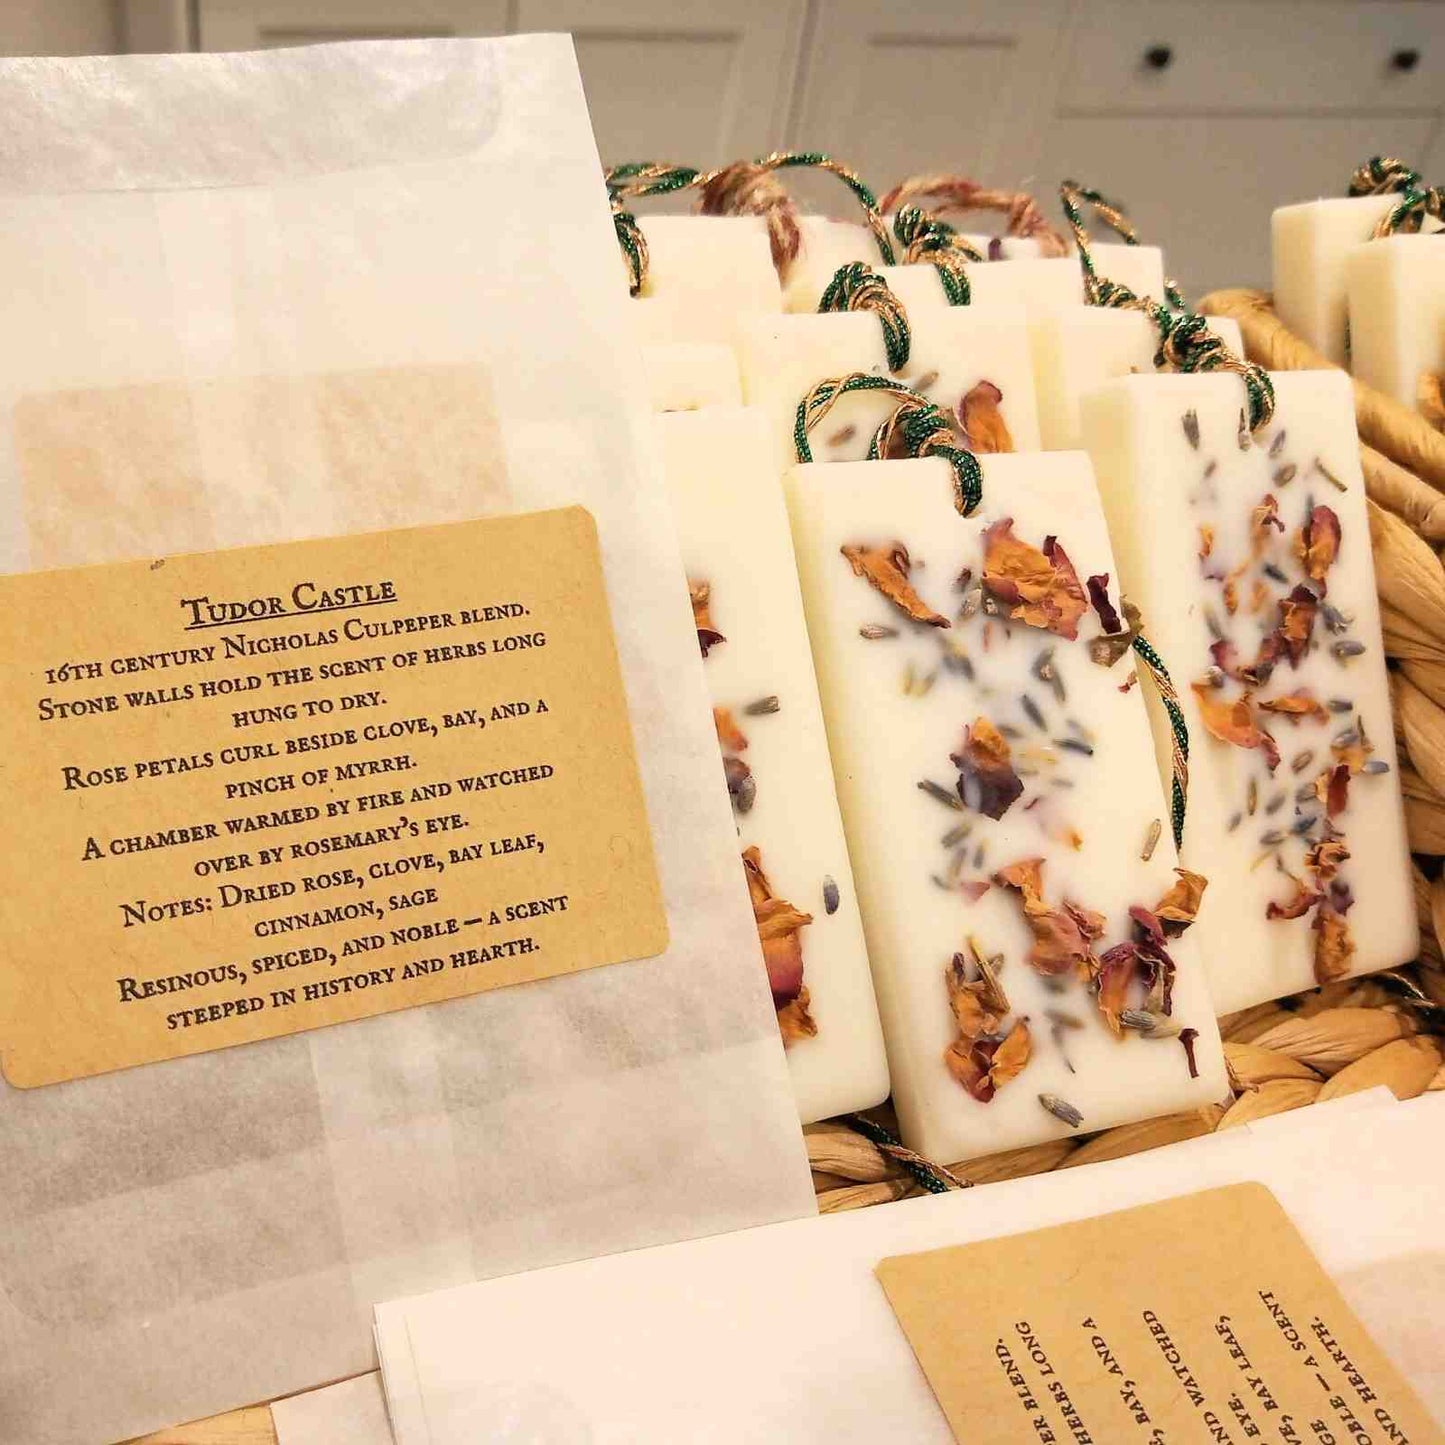 Tudor Castle
16th century Nicholas Culpeper blend.
Stone walls hold the scent of herbs long
hung to dry.
Rose petals curl beside clove, bay, and a
pinch of myrrh.
A chamber warmed by fire and watched
over by rosemary's eye.
Notes: Dried rose, clove, bay leaf,
cinnamon, sage
Resinous, spiced, and noble — a scent
steeped in history and hearth.
blend.
herbs long
bay, and a
and watched
eye.
bay leaf,
— a scent
and hearth.